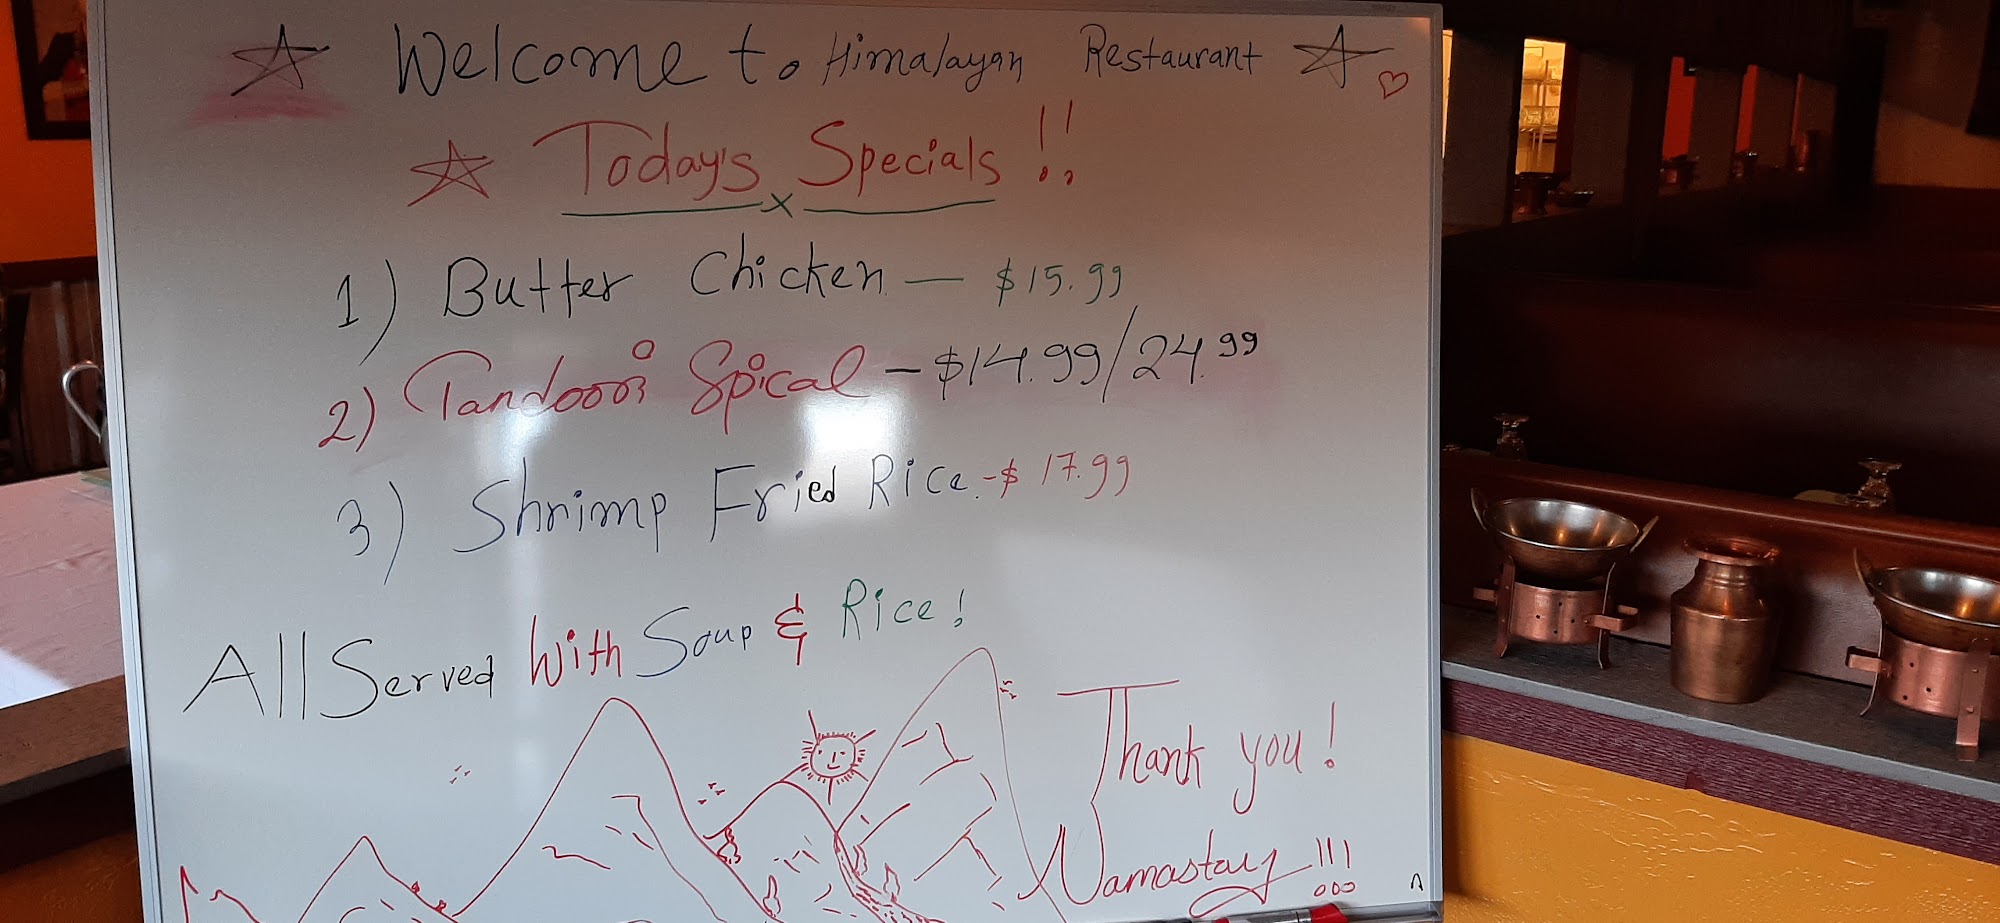 Welcome to Himalayan Restaurant
Today's Specials!!
1) Butter Chicken — $15.99
2) Tandoori Spical - $14.99/24.99
3) Shrimp Fried Rice - $17.99
All Served With Soup & Rice!
Thank you!
Namastay !!!